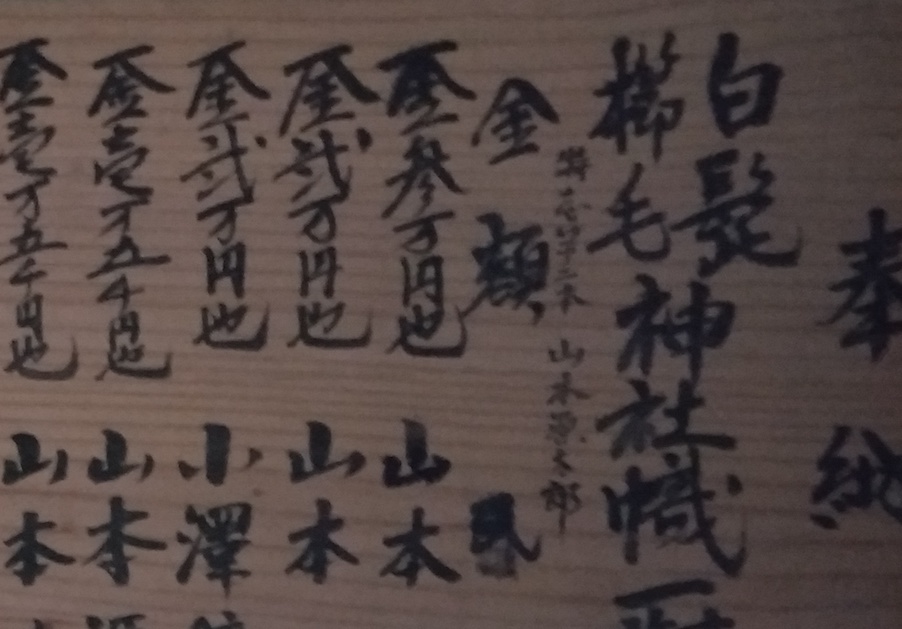 奉納
白髭
櫛毛神社幟一
山本
金額
金参万円也 山本
金弐万円也 山本
金弐万円也 小澤
金壱万五千円也 山本
金壱万五千円也 山本